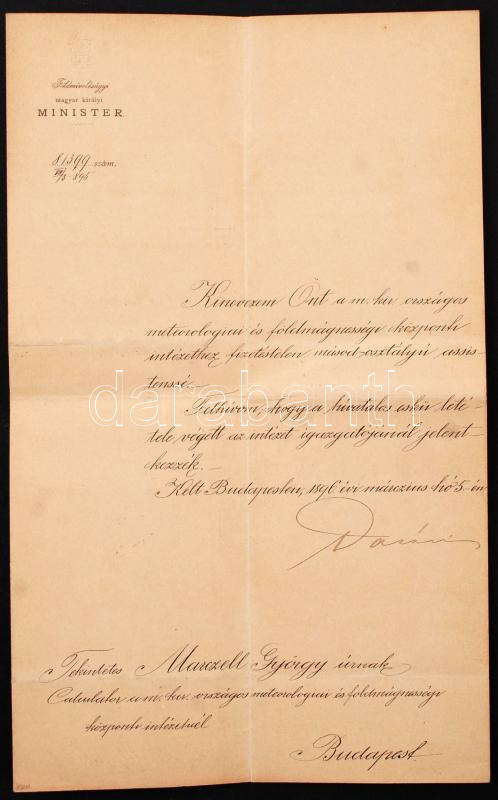 Földmivelésügyi
magyar királyi
MINISTER.
81399 szám.
Kinevezem Önt a m. kir. országos
meteorologiai és földmágnességi központi
intézethez fizetéstelen másod-osztályú assis-
tenssé.
Felhivom, hogy a hivatalos eskü leté-
tele végett az intézet igazgatójánál jelent-
kezzék. —
Kelt Budapesten, 1896 évi márczius hó 5-én
darabanth
Darányi
Tekintetes Marczell György úrnak
Calculator a m. kir. országos meteorologiai és földmágnességi
központi intézetnél
Budapest.